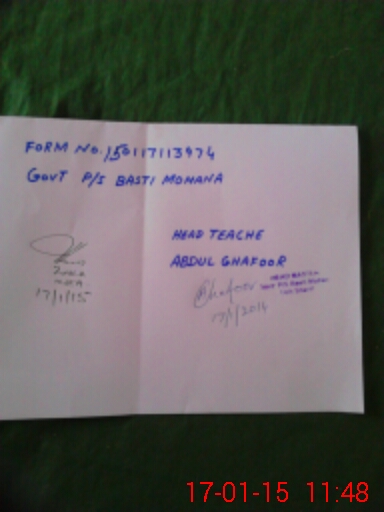 FORM NO. 150117113974
GOVT P/S BASTI MOHANA
HEAD TEACHE
ABDUL GHAFOOR
17/1/15
Ghafoor
17/1/2014
17-01-15 11:48